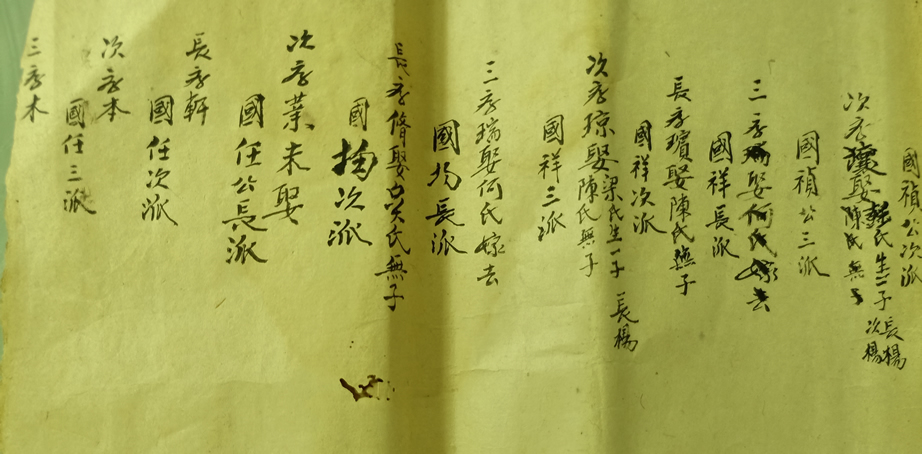 國禎公次派
次彥 娶 氏生二子長楊次楊
陳氏無子
國禎公三派
三彥瑞娶何氏嫁去
國祥長派
長彥璸娶陳氏無子
國祥次派
次彥琼娶梁氏生一子長楊
陳氏無子
國祥三派
三彥瑞娶何氏嫁去
國 長派
長彥脩娶 氏無子
國 次派
次彥業未娶
國任公長派
長彥軒
國任次派
次彥本
國任三派
三彥木